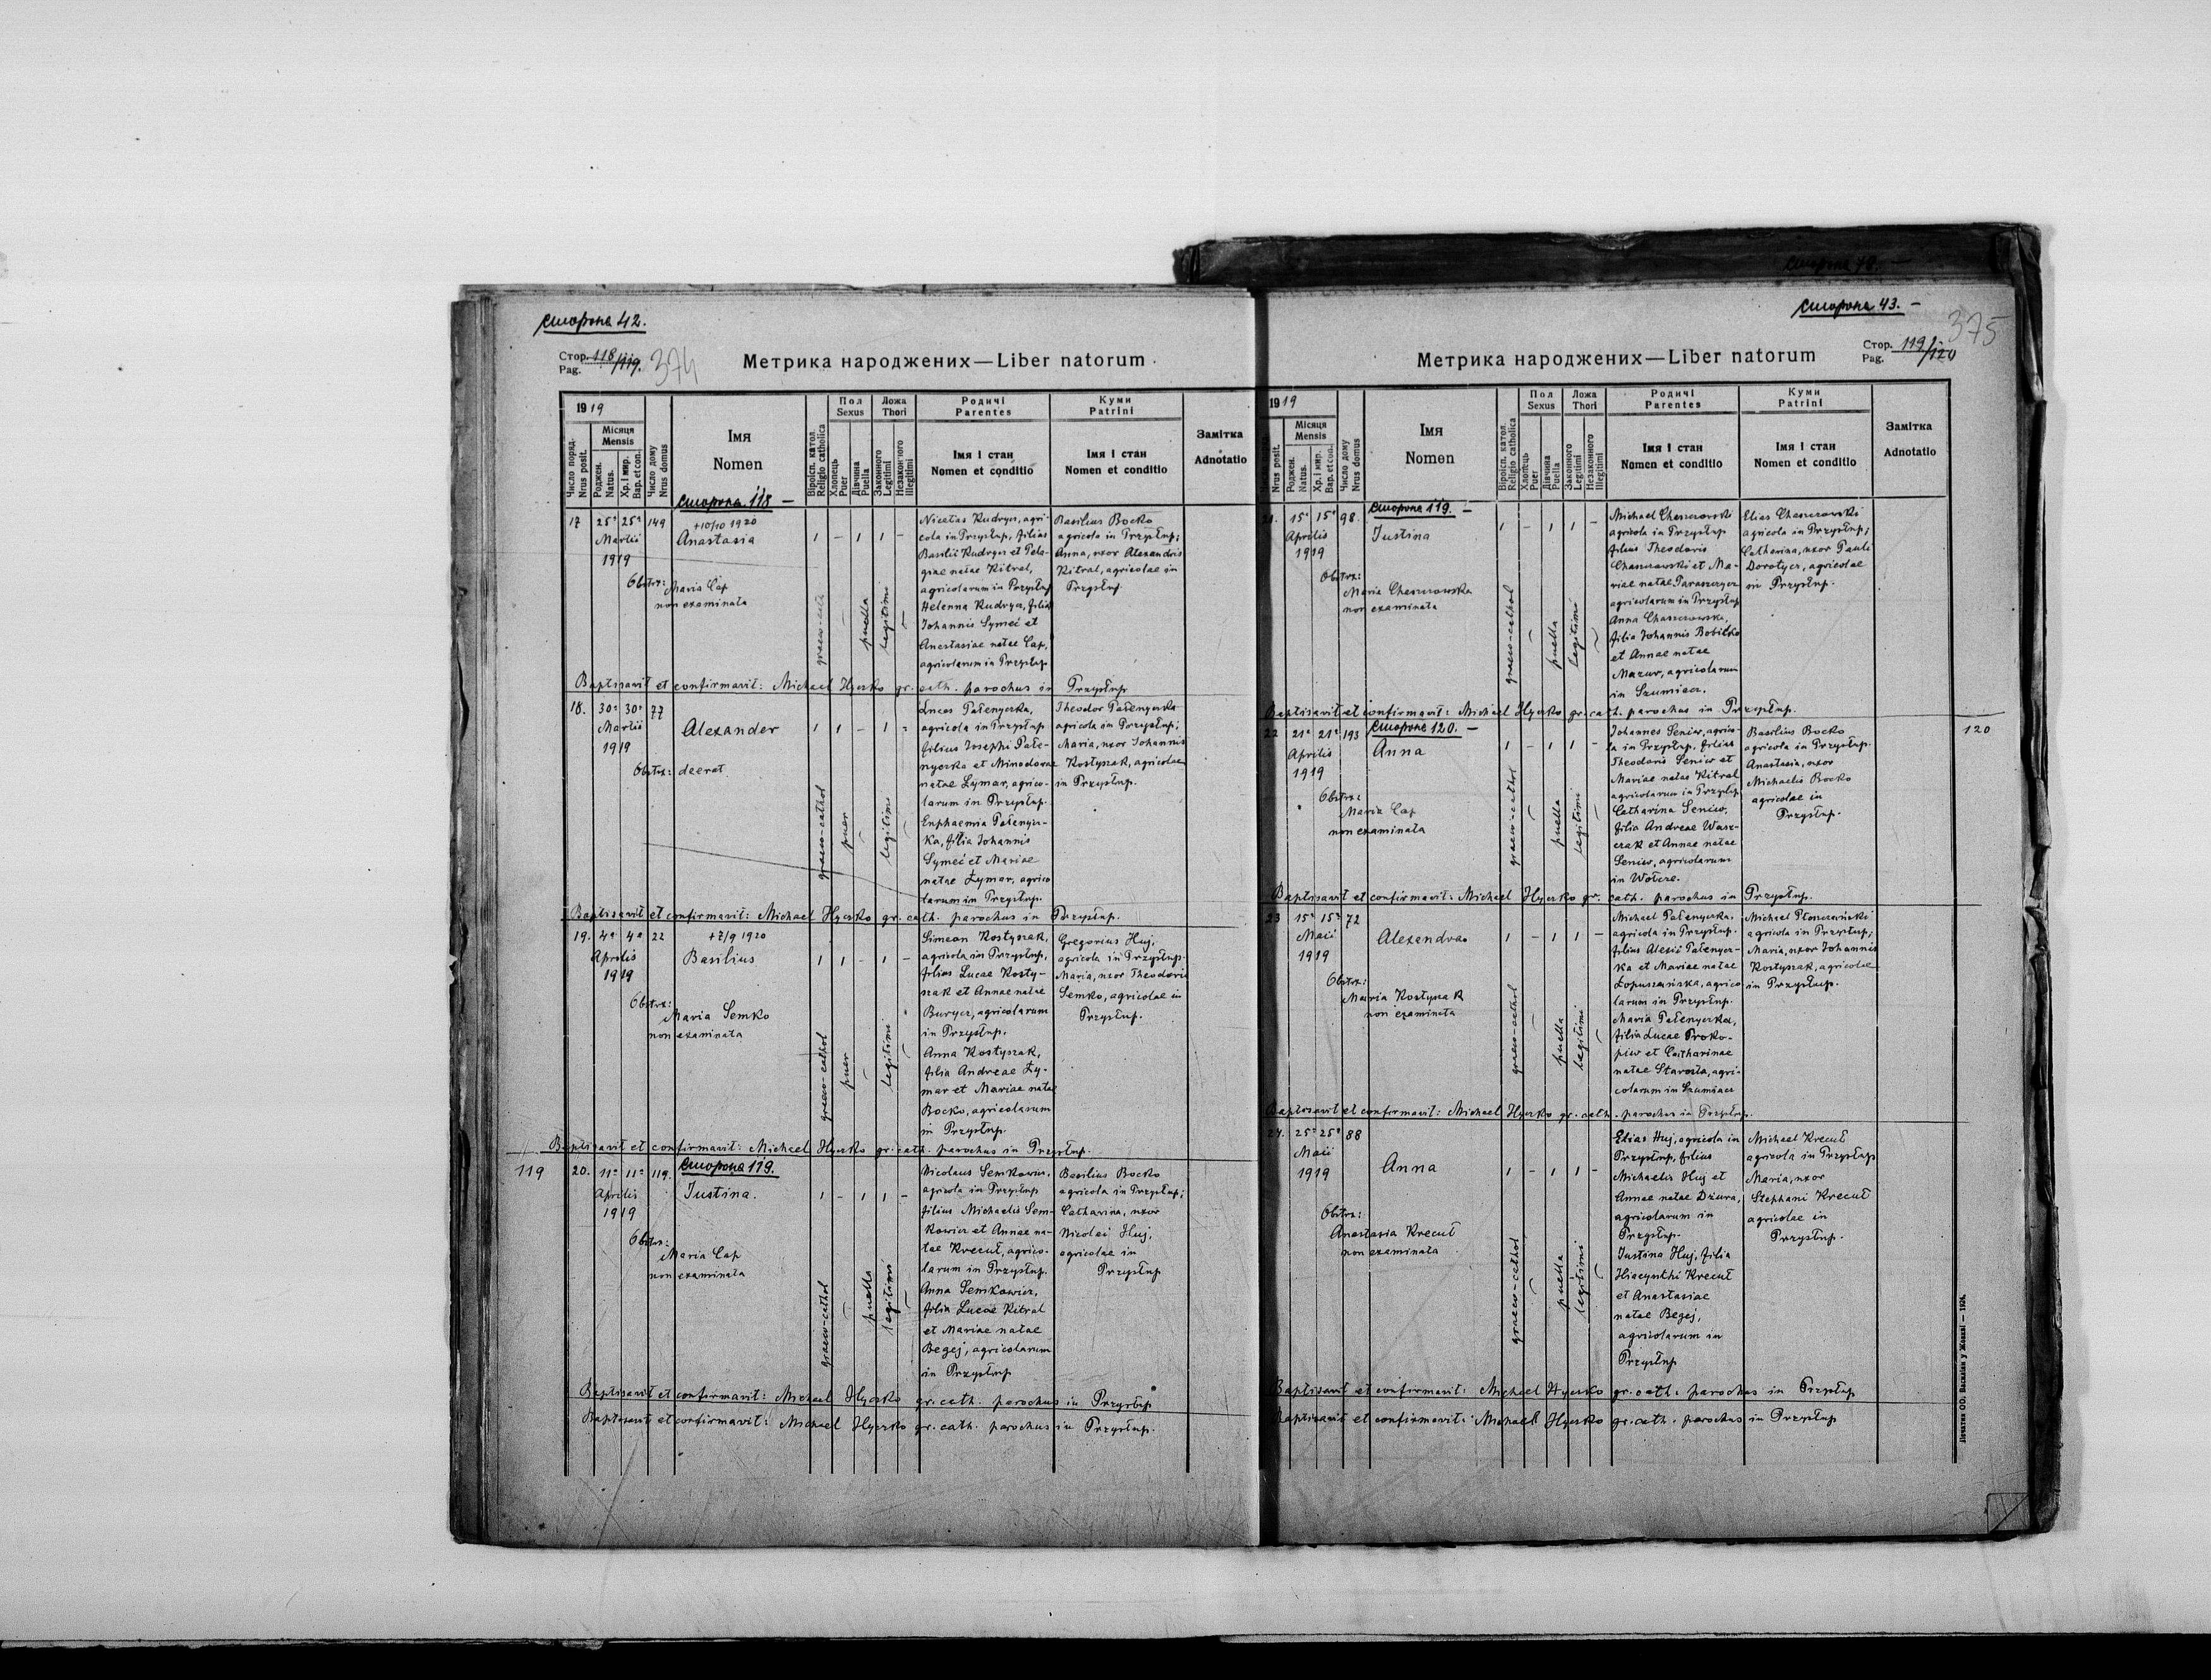 Сторона 42.
Стор. 118/119.
Pag.
374
Метрика народжених—Liber natorum
1919
Число поряд.
Nrus posit.
Місяця
Mensis
Роджен.
Natus.
Хр. і мир.
Bap. et con.
Число дому
Nrus domus
Імя
Nomen
Віроісп. катол.
Religio catholica
Пол
Sexus
Хлопець
Puer
Дівчина
Puella
Ложа
Thori
Законного
Legitimi
Незаконного
Illegitimi
Родичі
Parentes
Імя і стан
Nomen et conditio
Куми
Patrini
Імя і стан
Nomen et conditio
Замітка
Adnotatio
Сторона 118 —
17 25ª 25ª 149
Martii
1919
+10/10 1920
Anastasia
Obstrx: Maria Cap
non examinata
graeco-cath
puella
legitimi
Nicetas Kudryn, agri-
cola in Przysłup, filius
Basilii Kudryn et Pela-
giae natae Kitral,
agricolarum in Przysłup
Helenna Kudryn, filia
Johannis Symeć et
Anastasiae natae Cap,
agricolarum in Przysłup
Basilius Bocko
agricola in Przysłup;
Anna, uxor Alexandris
Kitral, agricolae in
Przysłup.
Baptisavit et confirmavit: Michael Hyczko gr. cath. parochus in Przysłup
18. 30ª 30ª 77
Martii
1919
Alexander
Obstrx: deerat
graeco-cathol
puer
legitimi
Lucas Pałenyczka,
agricola in Przysłup
filius Josephi Pałe-
nyczka et Minodorae
natae Żymar, agrico-
larum in Przysłup.
Euphaemia Pałenycz-
ka, filia Johannis
Symeć et Mariae
natae Żymar, agrico
larum in Przysłup.
Theodor Pałenyczka
agricola in Przysłup;
Maria, uxor Johannis
Kostyszak, agricolae
in Przysłup.
Baptisavit et confirmavit: Michael Hyczko gr. cath. parochus in Przysłup.
19. 4ª 4ª 22
Aprilis
1919
+7/9 1920
Basilius
Obstrx:
Maria Semko
non examinata
graeco-cathol
puer
legitimi
Simeon Kostyszak,
agricola in Przysłup,
filius Lucae Kosty-
szak et Annae natae
Burycz, agricolarum
in Przysłup.
Anna Kostyszak,
filia Andreae Ży-
mar et Mariae natae
Bocko, agricolarum
in Przysłup.
Gregorius Huj,
agricola in Przysłup.
Maria, uxor Theodoris
Semko, agricolae in
Przysłup.
Baptisavit et confirmavit: Michael Hyczko gr. cath. parochus in Przysłup.
Сторона 119.
119 20. 11ª 11ª 119.
Aprilis
1919
Justina.
Obstrx:
Maria Cap
non examinata
graeco-cathol
puella
legitimi
Nicolaus Semkowicz,
agricola in Przysłup
filius Michaelis Sem-
kowicz et Annae na-
tae Krecuł, agrico-
larum in Przysłup.
Anna Semkowicz,
filia Lucae Kitral
et Mariae natae
Begej, agricolarum
in Przysłup
Basilius Bocko
agricola in Przysłup;
Catharina, uxor
Nicolai Huj,
agricolae in
Przysłup
Baptisavit et confirmavit: Michael Hyczko gr. cath. parochus in Przysłup
Baptisavit et confirmavit: Michael Hyczko gr. cath. parochus in Przysłup.
Сторона 43. —
375
Стор. 119/120
Pag.
Метрика народжених—Liber natorum
1919
Nrus posit.
Місяця
Mensis
Роджен.
Natus.
Хр. і мир.
Bap. et con.
Число дому
Nrus domus
Імя
Nomen
Віроісп. катол.
Religio catholica
Пол
Sexus
Хлопець
Puer
Дівчина
Puella
Ложа
Thori
Законного
Legitimi
Незаконного
Illegitimi
Родичі
Parentes
Імя і стан
Nomen et conditio
Куми
Patrini
Імя і стан
Nomen et conditio
Замітка
Adnotatio
Сторона 119. —
21. 15ª 15ª 98.
Aprilis
1919
Justina
Obstrx:
Maria Chaszczowska
non examinata
graeco-cathol
puella
legitimi
Michael Chaszczowski
agricola in Przysłup
filius Theodoris
Chaszczowski et Ma-
riae natae Paraszczycz
agricolarum in Przysłup
Anna Chaszczowska,
filia Johannis Bobiłko
et Annae natae
Mazur, agricolarum
in Szumiacz.
Elias Chaszczowski
agricola in Przysłup;
Catharina, uxor Pauli
Dorotycz, agricolae
in Przysłup.
Baptisavit et confirmavit: Michael Hyczko gr. cath. parochus in Przysłup.
Сторона 120. —
22 21ª 21ª 193
Aprilis
1919
Anna
Obstrx:
Maria Cap
non examinata
graeco-cathol
puella
legitimi
Johannes Seniw, agrico-
la in Przysłup, filius
Theodoris Seniw et
Mariae natae Kitral
agricolarum in Przysłup
Catharina Seniw,
filia Andreae Wasz-
czak et Annae natae
Seniw, agricolarum
in Wołcze.
Basilius Bocko
agricola in Przysłup.
Anastasia, uxor
Michaelis Bocko
agricolae in
Przysłup.
120
Baptisavit et confirmavit: Michael Hyczko gr. cath. parochus in Przysłup.
23 15ª 15ª 72
Maii
1919
Alexandra
Obstrx:
Maria Kostyszak
non examinata
graeco-cathol
puella
legitimi
Michael Pałenyczka,
agricola in Przysłup.
filius Alexii Pałenycz-
ka et Mariae natae
Łopuszańska, agrico
larum in Przysłup.
Maria Pałenyczka,
filia Lucae Proko-
piw et Catharinae
natae Starosta, agri-
colarum in Szumiacz
Michael Płoszczański
agricola in Przysłup;
Maria, uxor Johannis
Kostyszak, agricolae
in Przysłup.
Baptisavit et confirmavit: Michael Hyczko gr. cath. parochus in Przysłup.
24. 25ª 25ª 88
Maii
1919
Anna
Obstrx:
Anastasia Krecuł
non examinata
graeco-cathol
puella
legitimi
Elias Huj, agricola in
Przysłup, filius
Michaelis Huj et
Annae natae Dżura,
agricolarum in
Przysłup.
Justina Huj, filia
Hiacynthi Krecuł
et Anastasiae
natae Begej,
agricolarum in
Przysłup
Michael Krecuł
agricola in Przysłup
Maria, uxor
Stephani Krecuł
agricolae in
Przysłup.
Baptisavit et confirmavit: Michael Hyczko gr. cath. parochus in Przysłup
Baptisavit et confirmavit: Michael Hyczko gr. cath. parochus in Przysłup
Печатня ОО. Василіян у Жовкві — 1924.